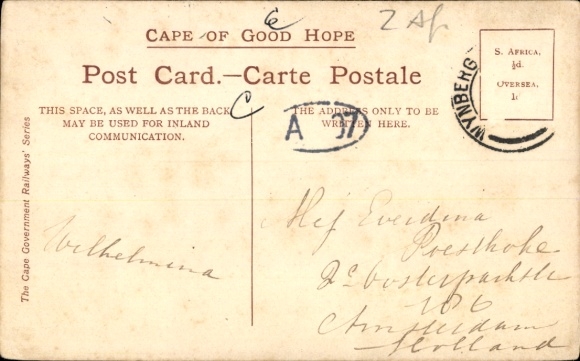 CAPE OF GOOD HOPE
Z Af
Post Card.—Carte Postale
S. AFRICA,
½d.
OVERSEA,
WYNBERG
THIS SPACE, AS WELL AS THE BACK
MAY BE USED FOR INLAND
COMMUNICATION.
THE ADDRESS ONLY TO BE
WRITTEN HERE.
A
The Cape Government Railways' Series
Wilhelmina
Mej Everdina
Poesthoke
2e Oosterparkstr
106
Amsterdam
Holland